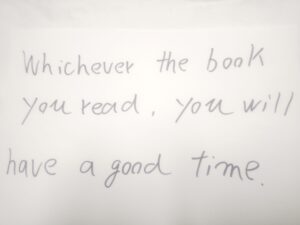 Whichever the book
you read, you will
have a good time.